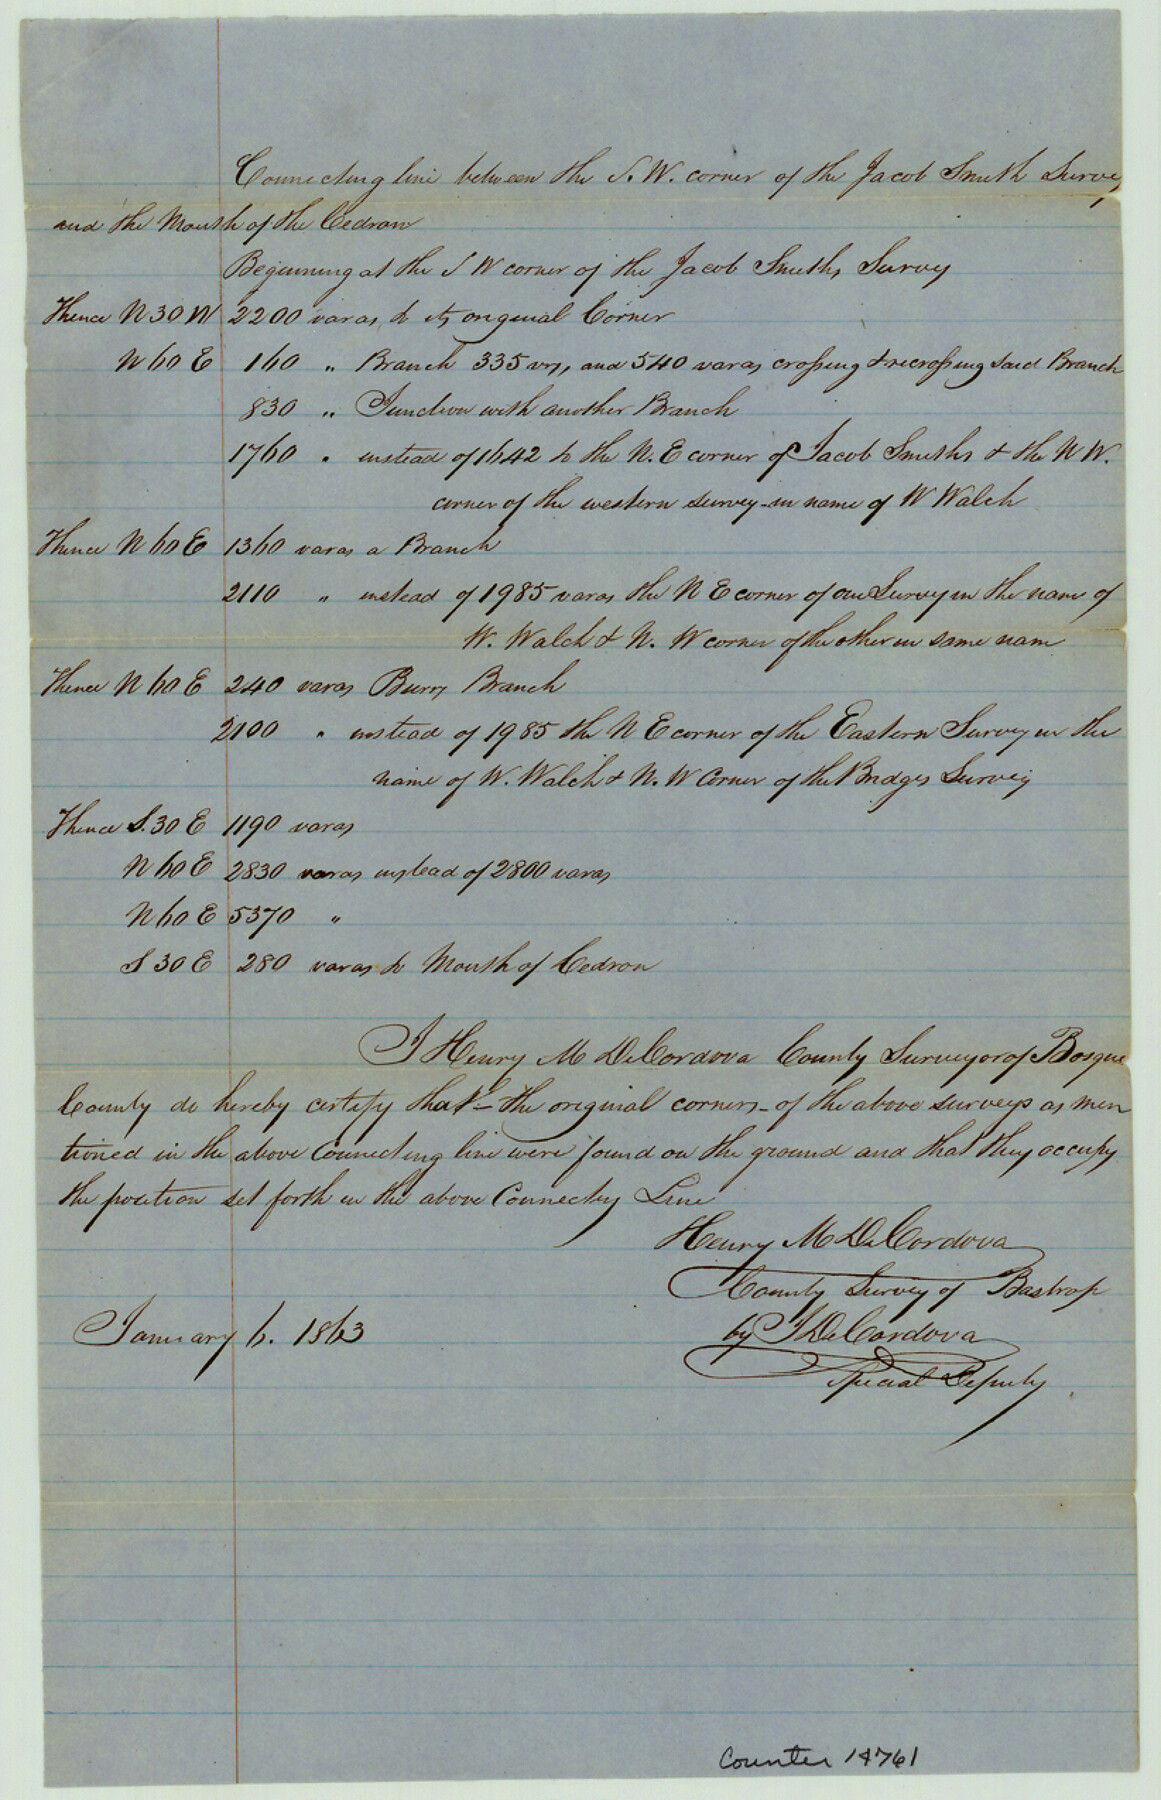 Connecting line between the S. W. corner of the Jacob Smith Survey
and the Mouth of the Cedron
Beginning at the S W corner of the Jacob Smiths Survey
Thence N 30 W 2200 varas to its original Corner
N 60 E 160 " Branch 335 vrs, and 540 varas crossing & recrossing said Branch
830 " Junction with another Branch
1760 " instead of 1642 to the N. E corner of Jacob Smiths & the N W.
corner of the western survey in name of W Walch
Thence N 60 E 1360 varas a Branch
2110 " instead of 1985 varas the N E corner of one Survey in the name of
W. Walch & N. W corner of the other in same name
Thence N 60 E 240 varas Burrs Branch
2100 " instead of 1985 the N E corner of the Eastern Survey in the
name of W. Walch & N. W Corner of the Bridges Survey
Thence S. 30 E 1190 varas
N 60 E 2830 varas instead of 2800 varas
N 60 E 5370 "
S 30 E 280 varas to Mouth of Cedron
I Henry M De Cordova County Surveyor of Bosque
County do hereby certify that the original corners of the above surveys as men
tioned in the above Connecting line were found on the ground and that they occupy
the position set forth in the above Connectng Line
Henry M De Cordova
County Survey of Bastrop
January 6. 1863 by J De Cordova
Special Deputy
Counter 14761